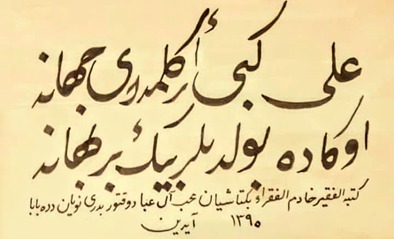 علی کبی أر کلمدی جهانه
اوکاده بولدیلر بیك بر بهانه
کتبه الفقیر خادم الفقراء بکتاشیان محب آل عبا دوقتور بدری نویان دده بابا
۱۳۹۵ آیدین